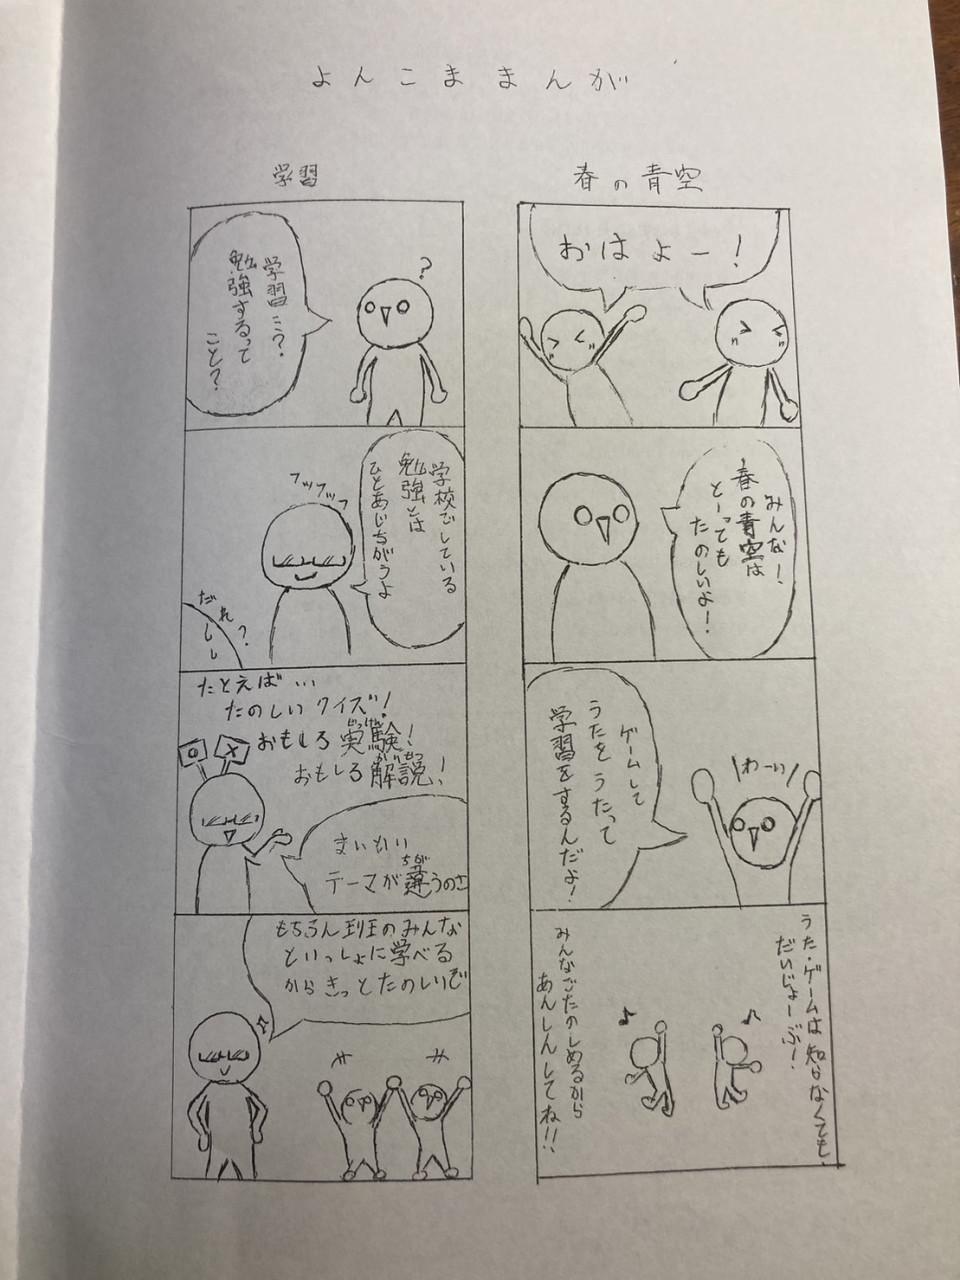 よんこままんが
春の青空
おはよー！
みんな！
春の青空は
とーっても
たのしいよ！
わーい
ゲームして
うたをうたって
学習をするんだよ！
うた・ゲームは知らなくても、
だいじょーぶ！
みんなでたのしめるから
あんしんしてね!!
学習
？
学習…？
勉強するって
こと？
学校でしている
勉強とは
ひとあじちがうよ
フッフッフッ
だれ？
たとえば…
たのしいクイズ！
おもしろ実験！
じっけん
おもしろ解説！
かいせつ
○ ×
まいかい
テーマが違うのさ
ちが
もちろん班のみんな
といっしょに学べる
からきっとたのしいぞ